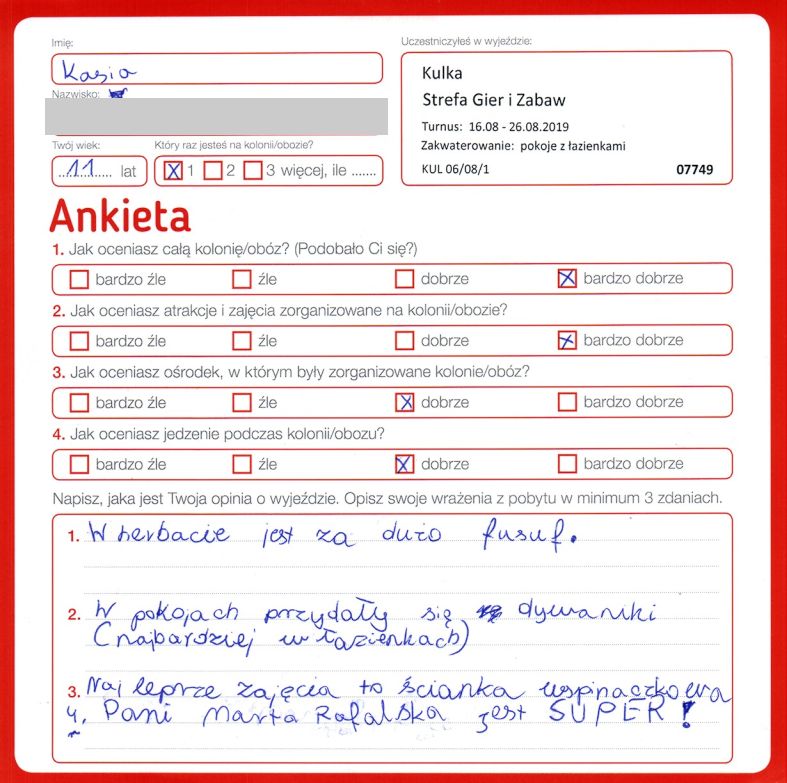 Imię:
Kasia
Nazwisko:
Twój wiek:
11 lat
Który raz jesteś na kolonii/obozie?
1 2 3 więcej, ile .......
Uczestniczyłeś w wyjeździe:
Kulka
Strefa Gier i Zabaw
Turnus: 16.08 - 26.08.2019
Zakwaterowanie: pokoje z łazienkami
KUL 06/08/1 07749
Ankieta
1. Jak oceniasz całą kolonię/obóz? (Podobało Ci się?)
bardzo źle źle dobrze bardzo dobrze
2. Jak oceniasz atrakcje i zajęcia zorganizowane na kolonii/obozie?
bardzo źle źle dobrze bardzo dobrze
3. Jak oceniasz ośrodek, w którym były zorganizowane kolonie/obóz?
bardzo źle źle dobrze bardzo dobrze
4. Jak oceniasz jedzenie podczas kolonii/obozu?
bardzo źle źle dobrze bardzo dobrze
Napisz, jaka jest Twoja opinia o wyjeździe. Opisz swoje wrażenia z pobytu w minimum 3 zdaniach.
1. W herbacie jest za dużo fusuf.
2. W pokojach przydały się dywaniki
(najbardziej w łazienkach)
3. Naj leprze zajęcia to ścianka wspinaczkowa
4. Pani Marta Rafalska jest SUPER!